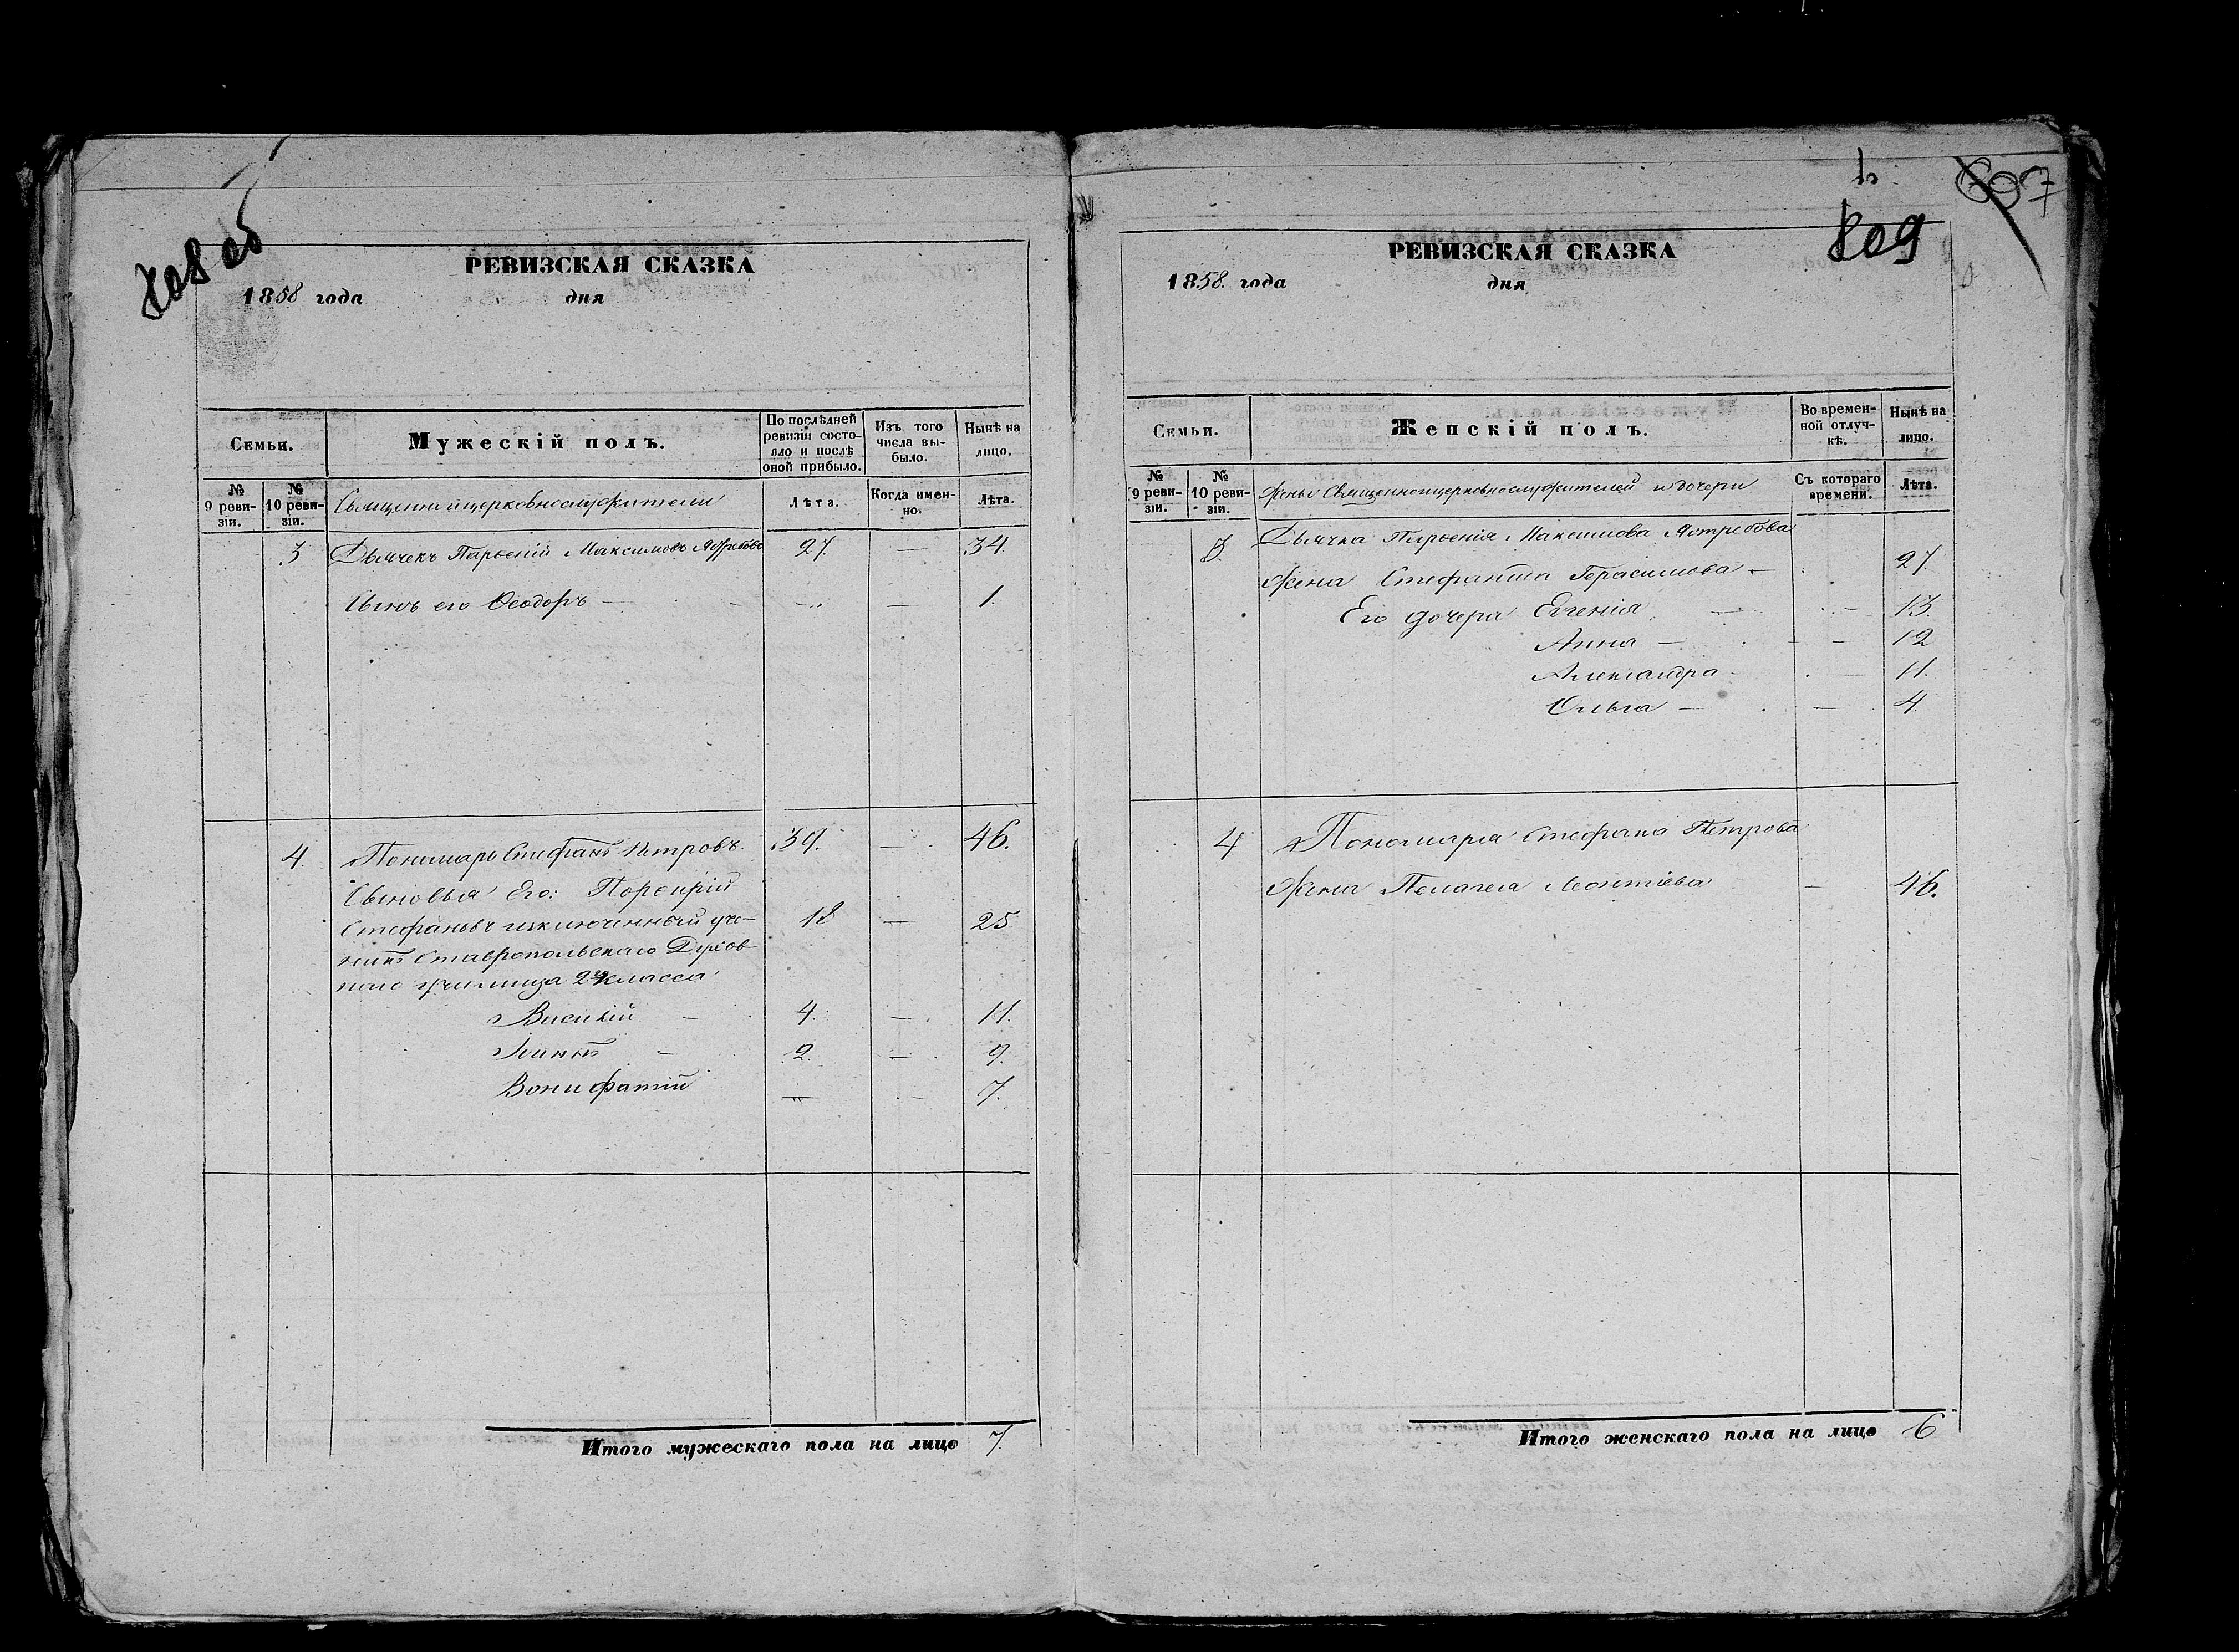 808 об
РЕВИЗСКАЯ СКАЗКА
1858 года дня
Семьи.
Мужескій полъ.
По послѣдней ревизіи состояло и послѣ оной прибыло.
Изъ того числа выбыло.
Нынѣ на лицо.
№ 9 ревизіи.
№ 10 ревизіи.
Священно и церковнослужители
Лѣта.
Когда именно.
Лѣта.
3 Дьячекъ Парѳеній Максимовъ Ястребовъ 27. — 34.
Сынъ его Ѳеодоръ — — — 1.
4. Пономарь Стефанъ Петровъ. 39. — 46.
Сыновья Его: Порфирій
Стефановъ изключенный уче- 18 — 25
никъ Ставропольскаго Духов-
наго училища 2го класса
Василій — 4. — 11.
Іоаннъ — 2. — 9.
Вонифатій — — 7.
Итого мужескаго пола на лицо 7.
807
809
РЕВИЗСКАЯ СКАЗКА
1858. года дня
Семьи.
Женскій полъ.
Во временной отлучкѣ.
Нынѣ на лицо.
№ 9 ревизіи.
№ 10 ревизіи.
Жены Священно и церковнослужителей и дочери
Съ котораго времени.
Лѣта.
3. Дьячка Парѳенія Максимова Ястребова
Жена Стефанида Герасимова — 27.
Его дочери Евгенія — — 13.
Анна — — 12
Александра — — 11.
Ольга — — 4.
4 Пономаря Стефана Петрова
Жена Пелагея Леонтіева — 46.
Итого женскаго пола на лицо 6